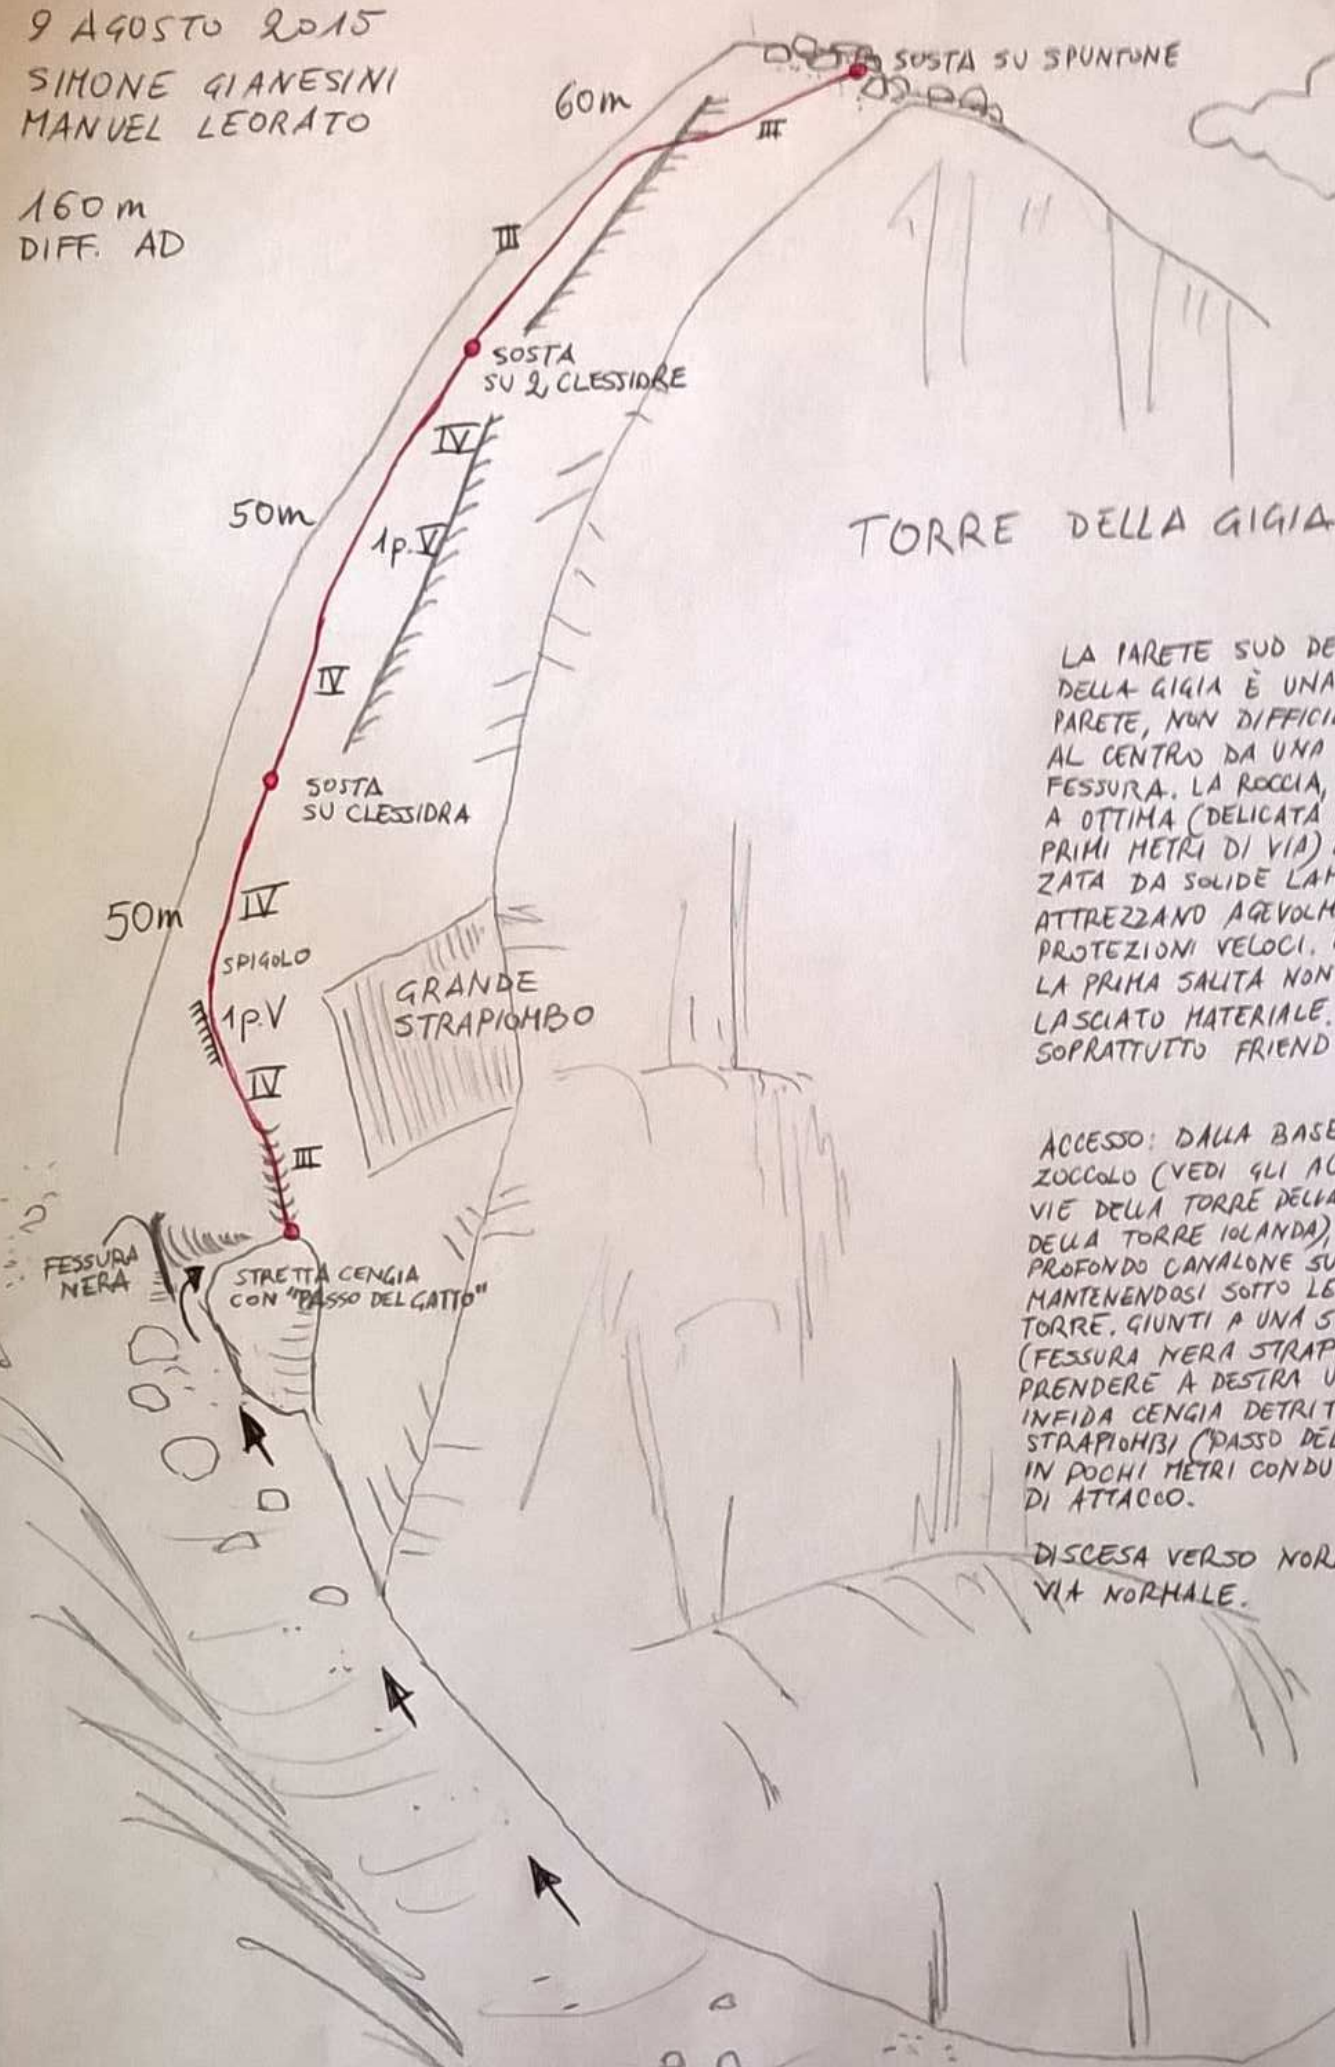 9 AGOSTO 2015
SIMONE GIANESINI
MANUEL LEORATO
160 m
DIFF. AD
SOSTA SU SPUNTONE
60m
III
III
SOSTA
SU 2 CLESSIDRE
IV
50m
1p.V
IV
SOSTA
SU CLESSIDRA
IV
50m
SPIGOLO
1p.V
IV
III
GRANDE
STRAPIOMBO
FESSURA
NERA
STRETTA CENGIA
CON "PASSO DEL GATTO"
TORRE DELLA GIGIA
LA PARETE SUD DE
DELLA GIGIA È UNA
PARETE, NON DIFFICI
AL CENTRO DA UNA
FESSURA. LA ROCCIA,
A OTTIMA (DELICATA
PRIMI METRI DI VIA)
ZATA DA SOLIDE LA
ATTREZZANO AGEVOLM
PROTEZIONI VELOCI.
LA PRIMA SALITA NON
LASCIATO MATERIALE.
SOPRATTUTTO FRIEND
ACCESSO: DALLA BASE
ZOCCOLO (VEDI GLI A
VIE DELLA TORRE DELLA
DELLA TORRE IOLANDA),
PROFONDO CANALONE SU
MANTENENDOSI SOTTO LE
TORRE. GIUNTI A UNA S
(FESSURA NERA STRAP
PRENDERE A DESTRA U
INFIDA CENGIA DETRIT
STRAPIOMBI ("PASSO DEL
IN POCHI METRI CONDU
DI ATTACCO.
DISCESA VERSO NOR
VIA NORMALE.